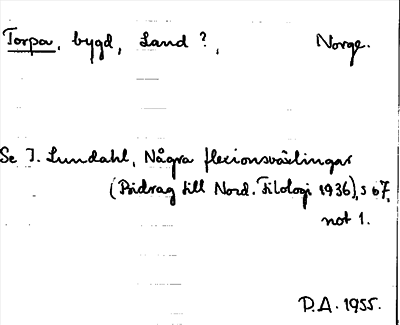 Torpa, bygd, Land ?, Norge.
Se I. Lundahl, Några flexionsväxlingar
(Bidrag till Nord. Filologi 1936), s 67,
not 1.
P.A. 1955.